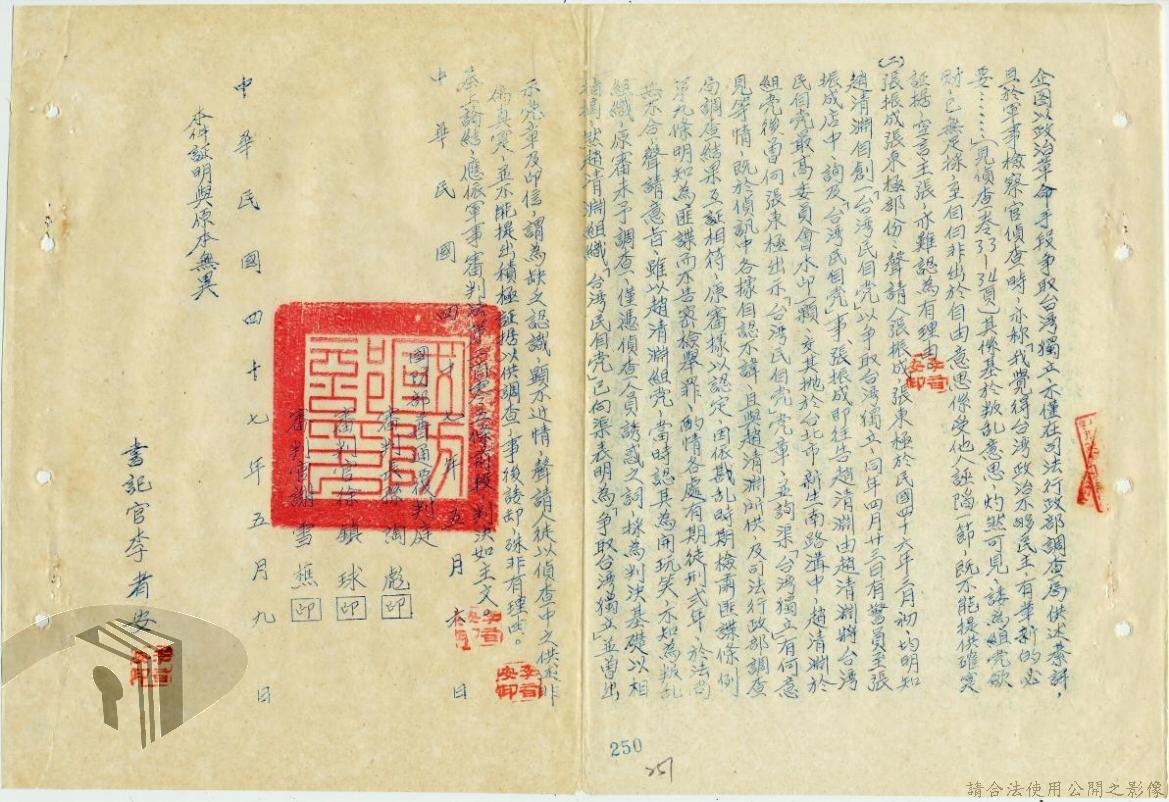 企图以政治革命手段争取台湾獨立亦僅在司法行政部調查局供述綦詳，
且於軍事檢察官偵查時，亦称「我覺得台湾政治不够民主，有革新的必
要……」（見偵查卷33—34頁）其傳基於叛乱意思，灼然可見，諉為組党欲
財，已無足採，至伯曰非出於自由意思係受他人誣陷節，既不能提供確实
証据，空言主张，亦難認為有理由
(二)張振成張東極部份：聲請人張振成張東極於民國四十六年三月初，均明知
趙清淵自創一「台湾民自党」以争取台湾獨立，同年四月廿三日有警員至張
振成店中，詢及「台湾民自党」事，張振成即往告趙清淵，由趙清淵將台湾
民自党最高委員會水印一顆，交其抛於台北市新生南路溝中，趙清淵於
組党後，曾向張東極出示「台湾民自党」党章，並詢渠「台湾獨立」有何意
見等情，既於偵訊中各據自認不諱，且與趙清淵所供，及司法行政部調查
局調查結果互証相符，原審據以認定，因依戡乱時期檢肅匪諜條例
第九條明知為匪諜而不告密檢舉罪，酌情各處有期徒刑弍年，於法尚
無不合，聲請意旨，雖以趙清淵組党，當時認其為開玩笑，不知為叛乱
組織，原審未予調查，僅憑偵查人員誘惑之詞，採為判决基礎以相
指摘，然趙清淵組織「台湾民自党」已向渠表明為争取台湾獨立，並曾出
示党章及印信，謂為缺乏認識，顯不近情，聲請人徒以偵查中之供述非
為真实，並不能提出積極証据以供調查，事後諉却，殊非有理由。
綦上論結，應依軍事審判法第二百零五條前段，判决如主文。
中華民國四十七年五月 日
國防部普通覆判庭
審判長 陶彪 印
審判官徐鎮球 印
審判官謝雪樵 印
本件証明與原本無異
中華民國四十七年五月九日
書記官李者安
李者安印
250
251
請合法使用公開之影像